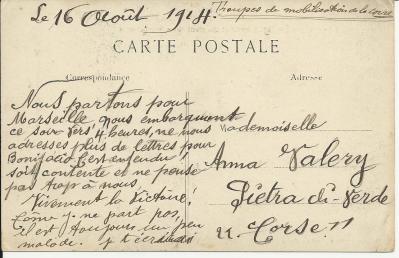 Le 16 Août 1914.
Troupes de mobilisation de la Corse
CARTE POSTALE
Correspondance
Adresse
Nous partons pour
Marseille nous embarquent
ce soir vers 4 heures, ne nous
adresses plus de lettres pour
Bonifacio C'est entendu
sois contente et ne pense
pas trop à nous.
Vivement la Victoire!
ne part pas,
il est toujours un peu
malade. J t'écrirai
Mademoiselle
Anna Valery
Pietra di-Verde
"Corse"